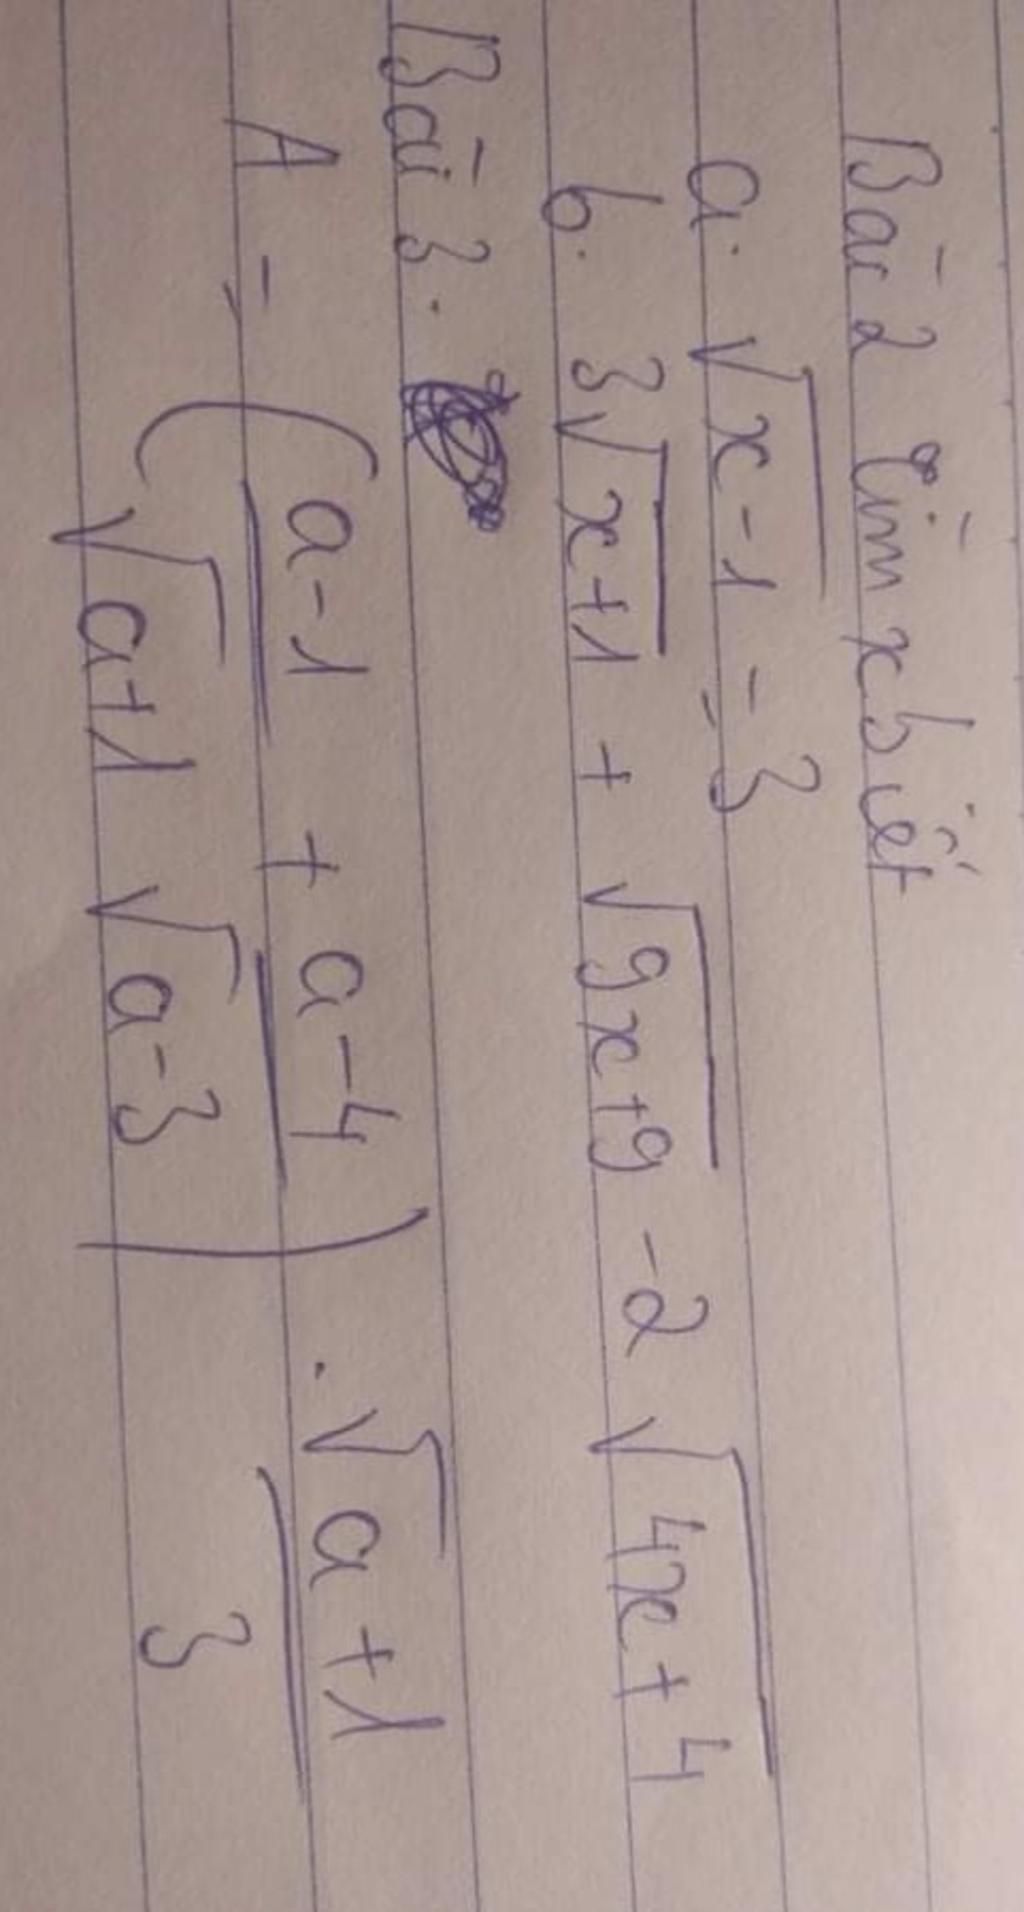 Bài 2 Tìm x biết
a. √x-1 = 3
b. 3√x+1 + √9x+9 - 2 √4x+4
Bài 3.
A = ( a-1 / √a+1 + a-4 / √a-3 ) . √a+1 / 3